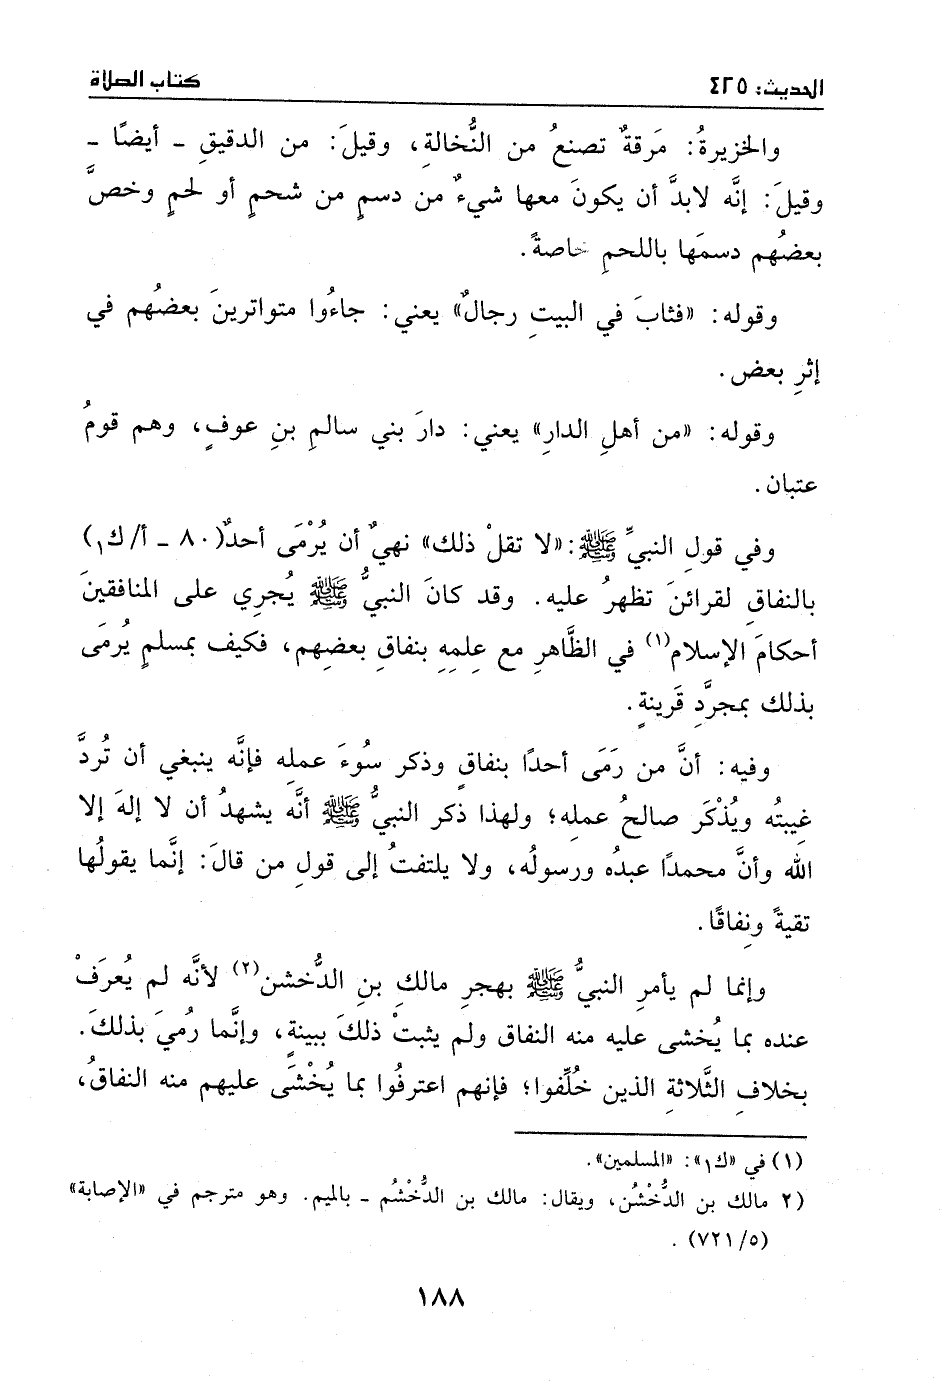 الحديث: ٤٢٥ كتاب الصلاة
والخزيرةُ: مَرقةٌ تصنعُ من النُّخالةِ، وقيلَ: من الدقيقِ ـ أيضًا ـ
وقيلَ: إنَّه لابدَّ أن يكونَ معها شيءٌ من دسمٍ من شحمٍ أو لحمٍ وخصَّ
بعضُهم دسمَها باللحمِ خاصةً.
وقوله: «فثابَ في البيتِ رجالٌ» يعني: جاءُوا متواترينَ بعضُهم في
إثرِ بعض.
وقوله: «من أهلِ الدارِ» يعني: دارَ بني سالمِ بنِ عوفٍ، وهم قومُ
عتبان.
وفي قولِ النبيِّ ﷺ: «لا تقلْ ذلك» نهيٌ أن يُرْمَى أحدٌ(٨٠ ـ أ/ ك١)
بالنفاقِ لقرائنَ تظهرُ عليه. وقد كانَ النبيُّ ﷺ يُجرِي على المنافقينَ
أحكامَ الإسلام(١) في الظَّاهرِ مع عِلمِهِ بنفاقِ بعضِهم، فكيف بمسلمٍ يُرمَى
بذلك بمجرَّدِ قَرينةٍ.
وفيه: أنَّ من رَمَى أحدًا بنفاقٍ وذكر سُوءَ عملِه فإنَّه ينبغي أن تُردَّ
غِيبتُه ويُذْكَر صالحُ عملِه؛ ولهذا ذكر النبيُّ ﷺ أنَّه يشهدُ أن لا إلهَ إلا
الله وأنَّ محمدًا عبدُه ورسولُه، ولا يلتفتُ إلى قولِ من قالَ: إنَّما يقولُها
تقيةً ونِفاقًا.
وإنما لم يأمرِ النبيُّ ﷺ بهجرِ مالكِ بنِ الدُّخشن(٢) لأنَّه لم يُعرَفْ
عنده بما يُخشى عليه منه النفاق ولم يثبتْ ذلكَ ببينةٍ، وإنَّما رُميَ بذلكَ.
بخلافِ الثَّلاثةِ الذين خُلِّفوا؛ فإنهم اعترفُوا بما يُخْشَى عليهم منه النفاقُ،
(١) في «ك١»: «المسلمين».
(٢ مالك بن الدُّخْشُن، ويقال: مالك بن الدُّخْشُم ـ بالميم. وهو مترجم في «الإصابة»
(٥/ ٧٢١).
١٨٨